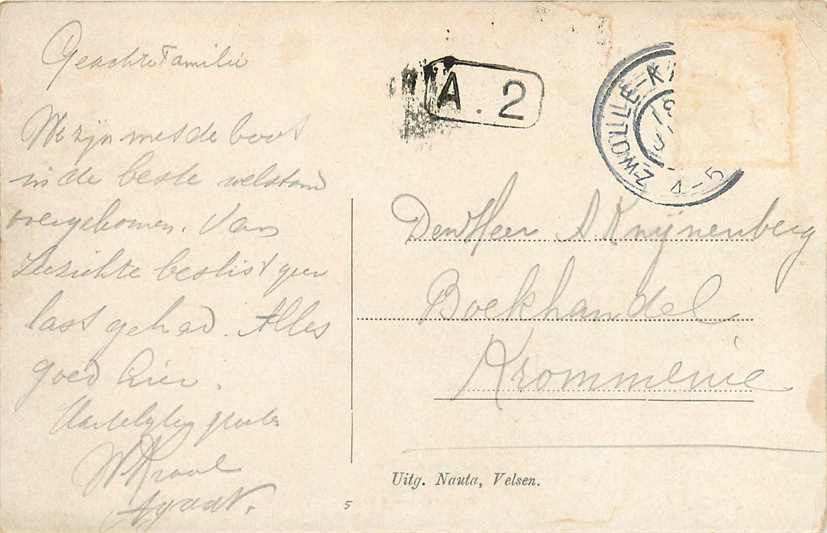 Geachte Familie
We zijn met de boot
in de beste welstand
overgekomen. Van
Zeeziekte beslist geen
last gehad. Alles
goed hier.
Hartelijke groeten
W Kraal
A. 2
ZWOLLE-K
4-5
Den Heer A Knijnenberg
Boekhandel
Krommenie
Uitg. Nauta, Velsen.
5